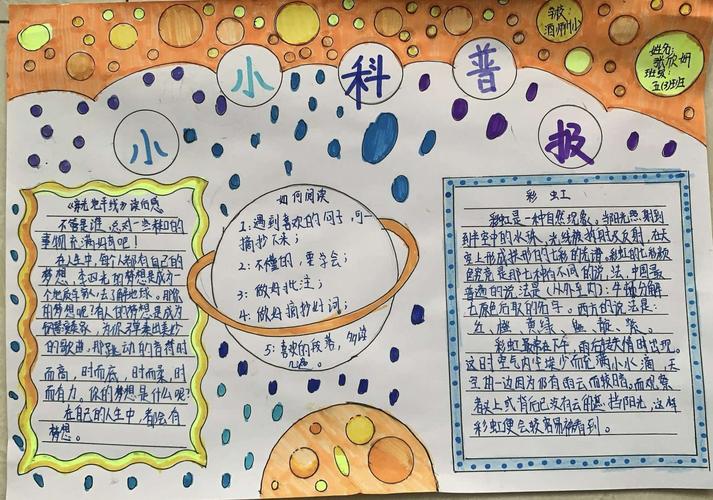 小小科普报
学校:
姓名:
班级:
五(3)班
读后感
不管是谁,总对一些
事物充满好奇吧!
在人生中,每个人都有自己的
梦想,李四光的梦想是成为一
个地质学家,去了解地球。那你
的梦想呢?有人的梦想是成为
的歌曲,那跳动的音符时
而高,时而底,时而柔,时
而有力。你的梦想是什么呢?
在自己的人生中,都会有
梦想。
如何阅读
1:遇到喜欢的句子,可
摘抄下来;
2:不懂的,要学会;
3:做好批注;
4:做好摘抄好词;
5:喜欢的段落,多读
几遍。
彩虹
彩虹是一种自然现象。当阳光照射到
到半空中的水珠,光线被折射及反射,在天
空上形成拱形的七彩的光谱。彩虹的七彩颜
色究竟是那七种有不同的说法,中国最
普遍的说法是(从外至内):
七原色所取的句年。西方的说法是:
红橙黄绿蓝靛紫。
彩虹最常在下午,雨后转天晴时出现。
这时空气内尘埃少而充满小水滴,天
空的一边因为仍有雨云而较暗。而观察
者头上或背后已没有云的遮挡阳光,这样
彩虹便会较容易被看到。